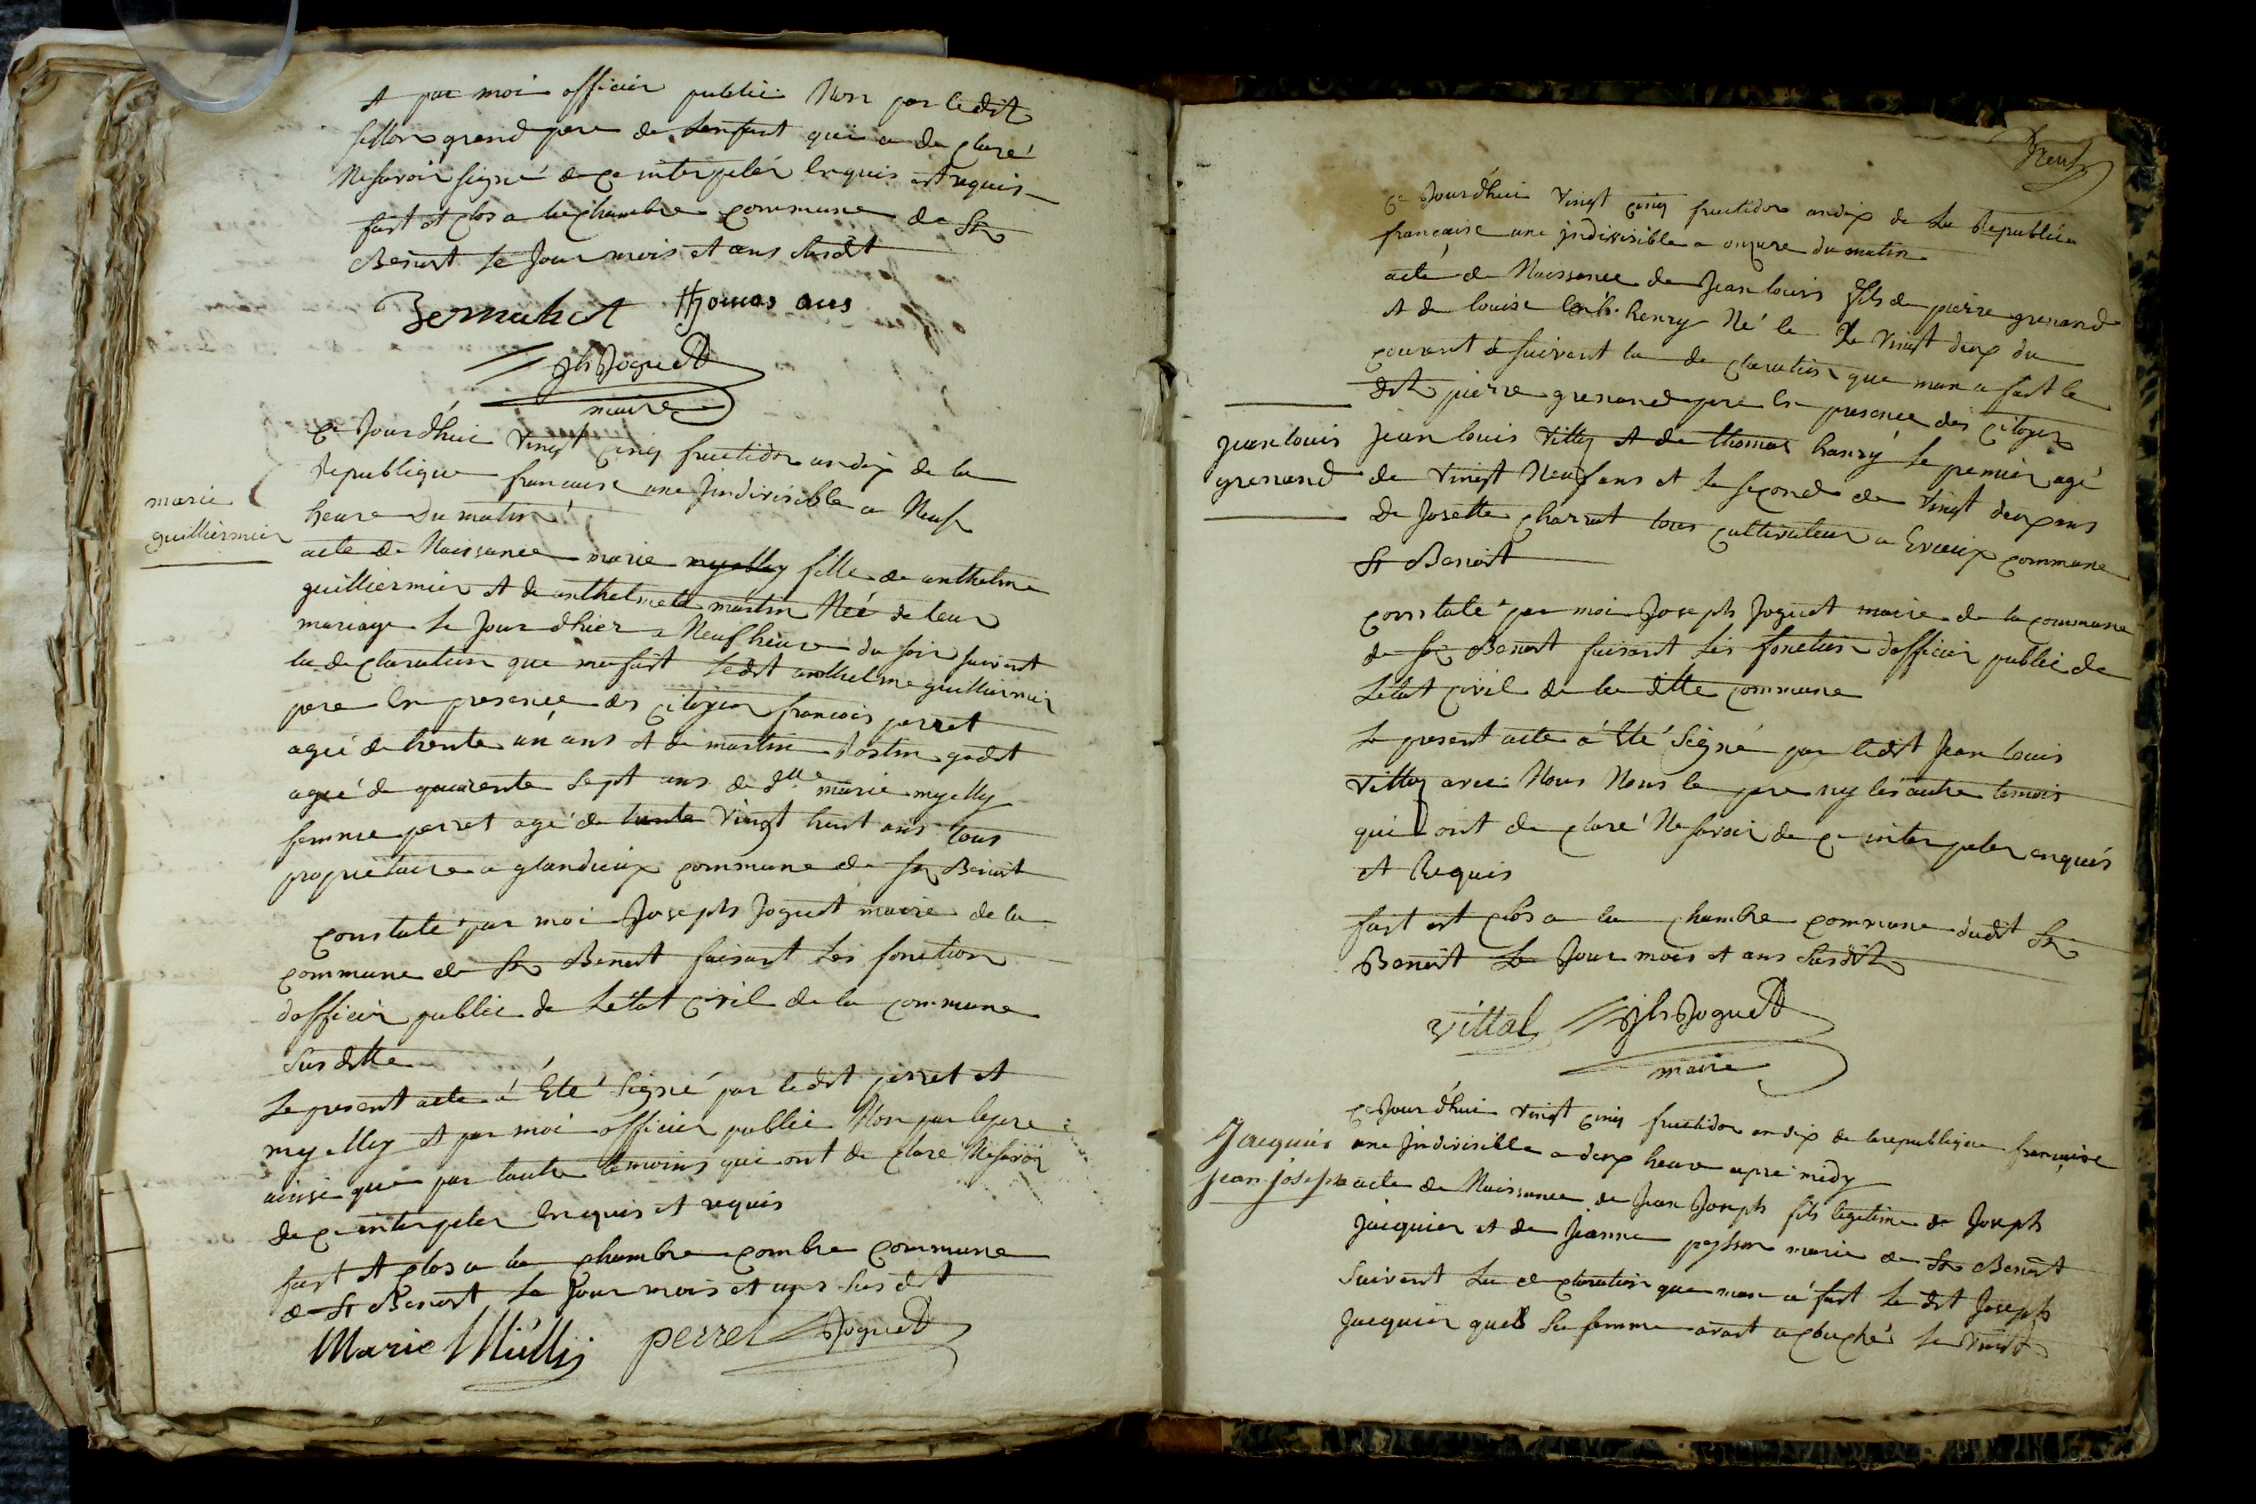 et par moi officier public Non par ledit
fillon grand pere de Lenfant qui a de claré
Ne savoir signé de ce interpelér Enquis et requis
fait et clos a la chambre commune de St
Benoit le Jour mois et ans Susdit
Bernahet thomas ans
Jh Joguet
maire
marie
guilliermier
Ce Jourdhui vingt cinq fructidor an dix de la
Republique francaise une Jndivisible a Neuf
heure Du matin
acte de Naissance marie myelly fille de anthelme
guilliermier et de anthelmete martin Née de leur
mariage le Jour dhier a Neuf heure du soir suivant
la de claration que ma fait Ledit anthelme guilliermier
pere En presence des citoyen francois perret
agié de trente un ans et de martin godet
agié de quarente sept ans de dlle marie myelly
femme perret agé de trente vingt huit ans tous
proprietaire a glandieux commune de St Benoit
constaté par moi Joseph Joguet maire de la
commune de St Benoit faisant les fonction
dofficier public de Létat civil de la commune
Sus ditte
Le present acte a Eté Signé par ledit perret et
myelly et par moi officier public Non par le pere
ainsi que par lautre temoins qui ont de claré Ne savoir
de ce interpeler Enquis et requis
fait et clos a la chambre combre commune
de St Benoit le Jour mois et ans Susdit
Marie Miülly perret Joguet
Neuf
Ce Jourdhui vingt cinq fructidor an dix de La Republica
francaise une jndivisible a onzure du matin
acté de Naissance de Jean louis fils de pierre grenand
et de louise henry Né le Le vingt deux du
courant a suivant la de claration que man a fait le
dit pierre grenand pere En presence des citoyen
Jean louis
grenand
jean louis Vittoz et de thomas hanry le premier agé
de vingt Neuf ans et le second de vingt deux ans
De Josette charrut tous cultivateur a Evieux commune
St Benoit
constaté par moi Joseph Joguet maire de la commune
de St Benoit faisant Les fonction dofficier public de
Létat civil de la ditte commune
Le present acte a Eté Signé par ledit Jean louis
Vittoz avec Nous Nons le pere ny les autre temois
qui ont de claré Ne savoir de ce inter peler enquis
et Requis
fait et clos a la chambre commune dudit St
Benoit Le Jour mois et ans Susdit
vittal Jh Joguet
maire
Jacquier
jean joseph
Ce Jourdhui vingt cinq fructidor an dix de la republique francaise
une Jndivisible a deux heure apré midy
acte de Naissance de Jean Joseph fils legitime de Joseph
Jacquier et de Jeanne peysson marie de St Benoit
Suivent La de claration que man a fait Le dit Joseph
Jacquier quel Sa femme avait acouché le vingt